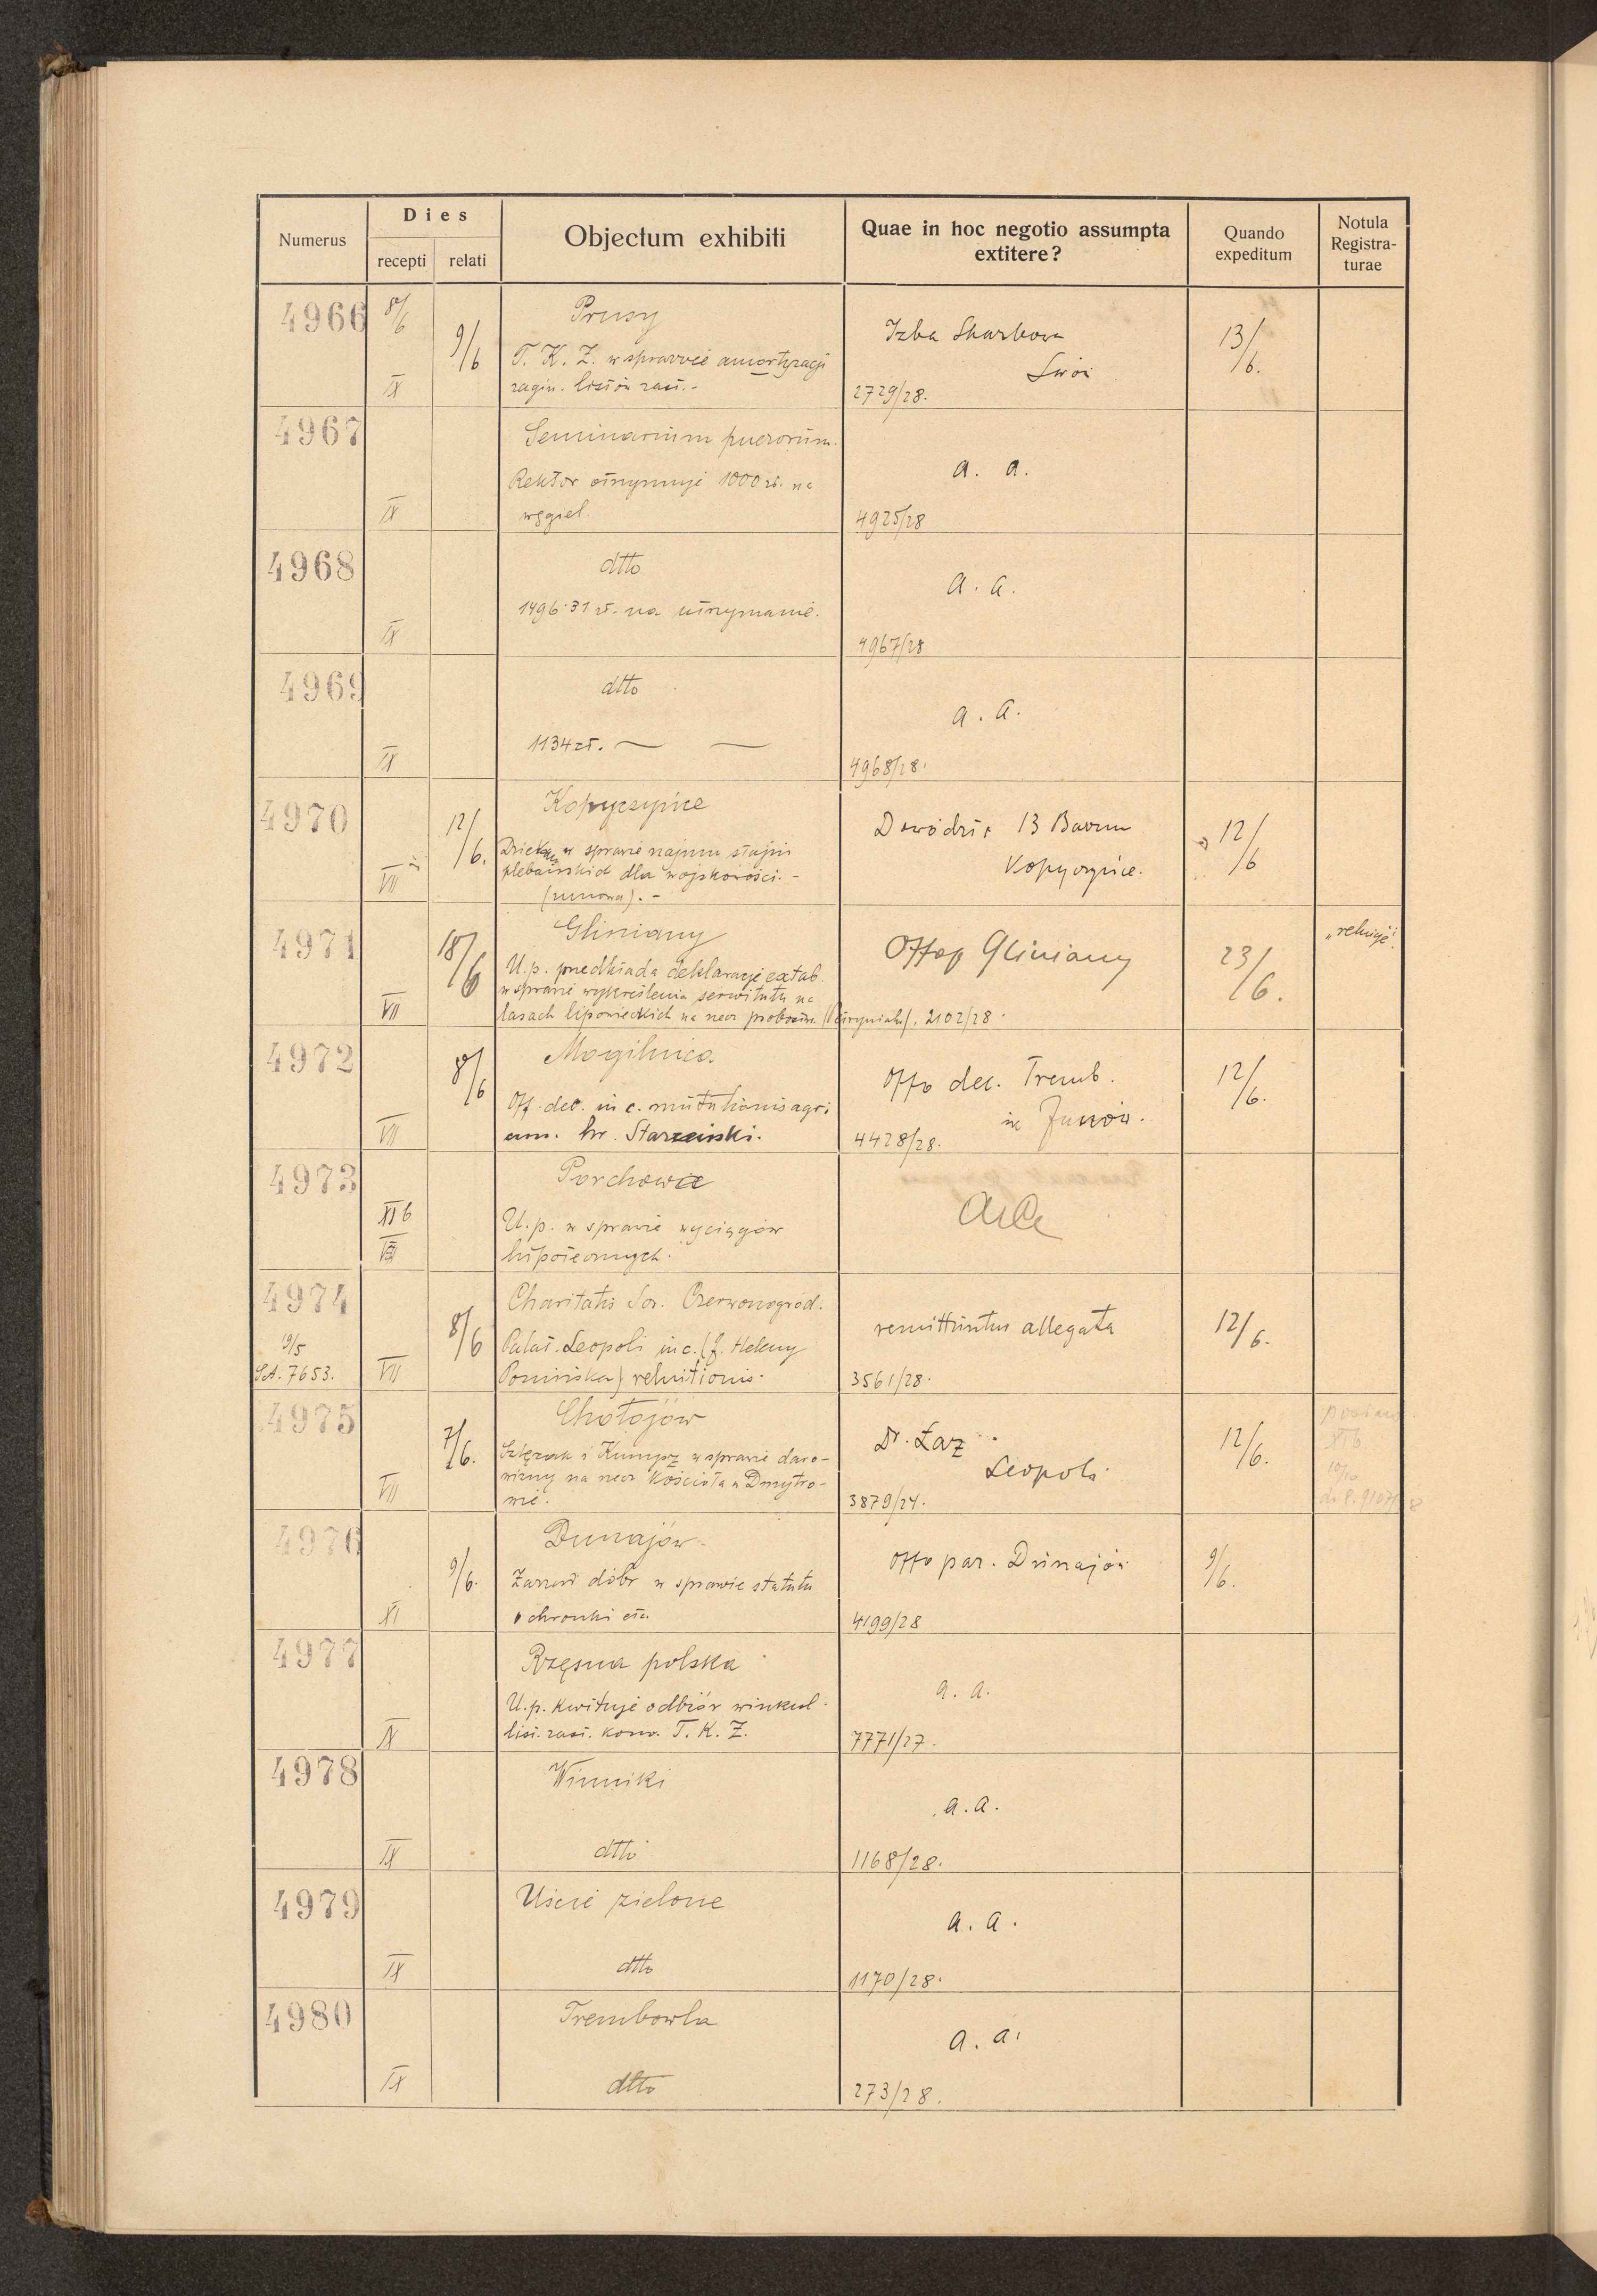 Numerus
Dies
recepti
relati
Objectum exhibiti
Quae in hoc negotio assumpta
extitere?
Quando
expeditum
Notula
Registra-
turae
4966
8/6
IX
9/6
Prusy
T. K. Z. w sprawie amortyzacji
zagin. listów zast.-
Izba Skarbowa
Lwów
2729/28.
13/6.
4967
IX
Seminarium puerorum.
Rektor otrzymuje 1000 zł. na
węgiel.
a. a.
4925/28
4968
IX
dtto
1496·31 zł. na utrzymanie.
a. a.
4967/28
4969
IX
dtto
1134 zł. — —
a. a.
4968/28.
4970
VII
12/6.
Kopyczyńce
Dziekan w sprawie najmu stajni
plebańskich dla wojskowości. -
(umowa). -
13
Kopyczyńce.
12/6
4971
VII
18/6
Gliniany
U.p. przedkłada deklarację extab.
w sprawie wykreślenia serwitutu na
lasach lipowieckich na rzecz probostw.
2102/28.
Offop Gliniany
23/6.
4972
VII
8/6
Mogilnica
Off. dec. in c. mutationis agri
cum. hr. Starzeński.
Offo dec. Tremb.
in Janów.
4428/28.
12/6.
4973
XI b
VII
Porchowa
U.p. w sprawie wyciągów
hipotecznych.
4974
19/5
SA. 7653.
VII
8/6
Charitatis Sor. Czerwonogród.
Palat. Leopoli in c. (f. Heleny
Ponińska) reluitionis.
remittuntur allegata
3561/28.
12/6.
4975
VII
7/6.
Chołojów
w sprawie daro-
wizny na rzecz Kościoła w Dmytro-
wie.
Dr. Łaz
Leopoli
3879/24.
12/6.
XI b
10/10
4976
XI
9/6.
Dunajów
Zarząd dóbr w sprawie statutu
ochronki etc.
Offo par. Dunajów
4199/28
9/6.
4977
IX
Rzęsna polska
U.p. kwituje odbiór winkul.
list. zast. konw. T. K. Z.
a. a.
7771/27.
4978
IX
Winniki
dtto
a. a.
1168/28.
4979
IX
Uście zielone
dtto
a. a.
1170/28.
4980
IX
Trembowla
dtto
a. a.
273/28.